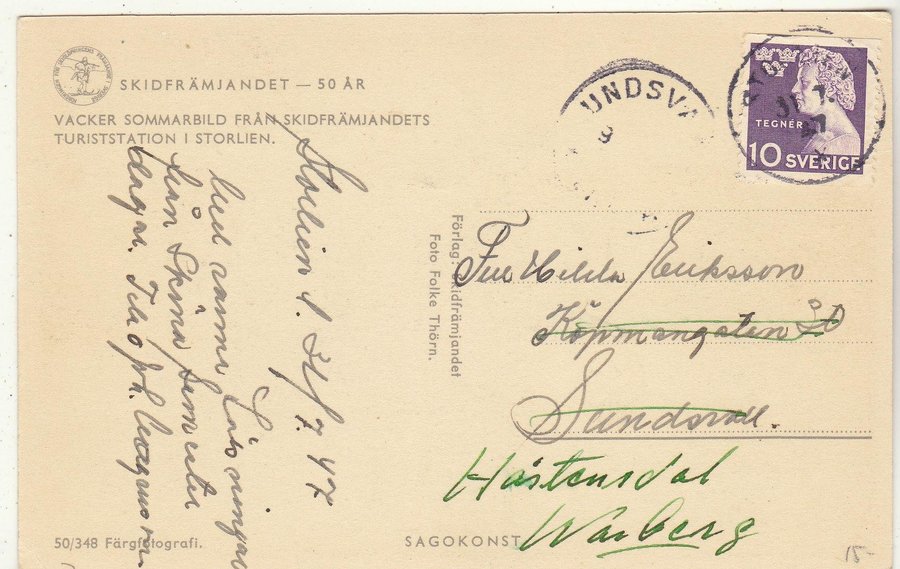 SKIDFRÄMJANDET — 50 ÅR
VACKER SOMMARBILD FRÅN SKIDFRÄMJANDETS
TURISTSTATION I STORLIEN.
Storlien d. 31/7 47
Med varma hälsningar
från
dagar.
Förlag: Skidfrämjandet
Foto Folke Thörn.
UNDSVA
9
TEGNÉR
10 SVERIGE
Fru Hilda Eriksson
Köpmangatan
Sundsvall.
Hästensdal
Warberg
50/348 Färgfotografi.
SAGOKONST
15-